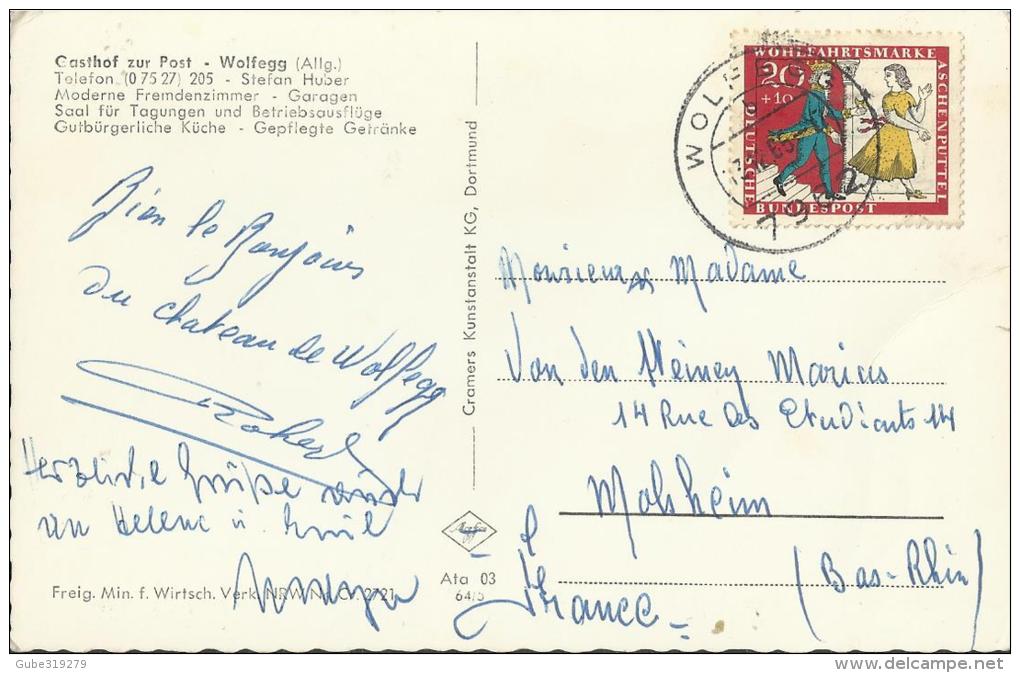 Gasthof zur Post - Wolfegg (Allg.)
Telefon (0 75 27) 205 - Stefan Huber
Moderne Fremdenzimmer - Garagen
Saal für Tagungen und Betriebsausflüge
Gutbürgerliche Küche - Gepflegte Getränke
Bien le Bonjour
du chateau de Wolfegg
Robert
Herzliche Grüße
an Helene u. Emil
Freig. Min. f. Wirtsch. Verk. NRW Nr. Cr. 2721
Cramers Kunstanstalt KG, Dortmund
Agfa
Ata 03
64/5
WOHLFAHRTSMARKE
ASCHENPUTTEL
20
+10
DEUTSCHE
BUNDESPOST
WOLFEGG
7962
Monsieur Madame
Van den Marius
14 Rue des Etudiants 14
Molsheim
(Bas-Rhin)
France
Gube319279
delcampe.net